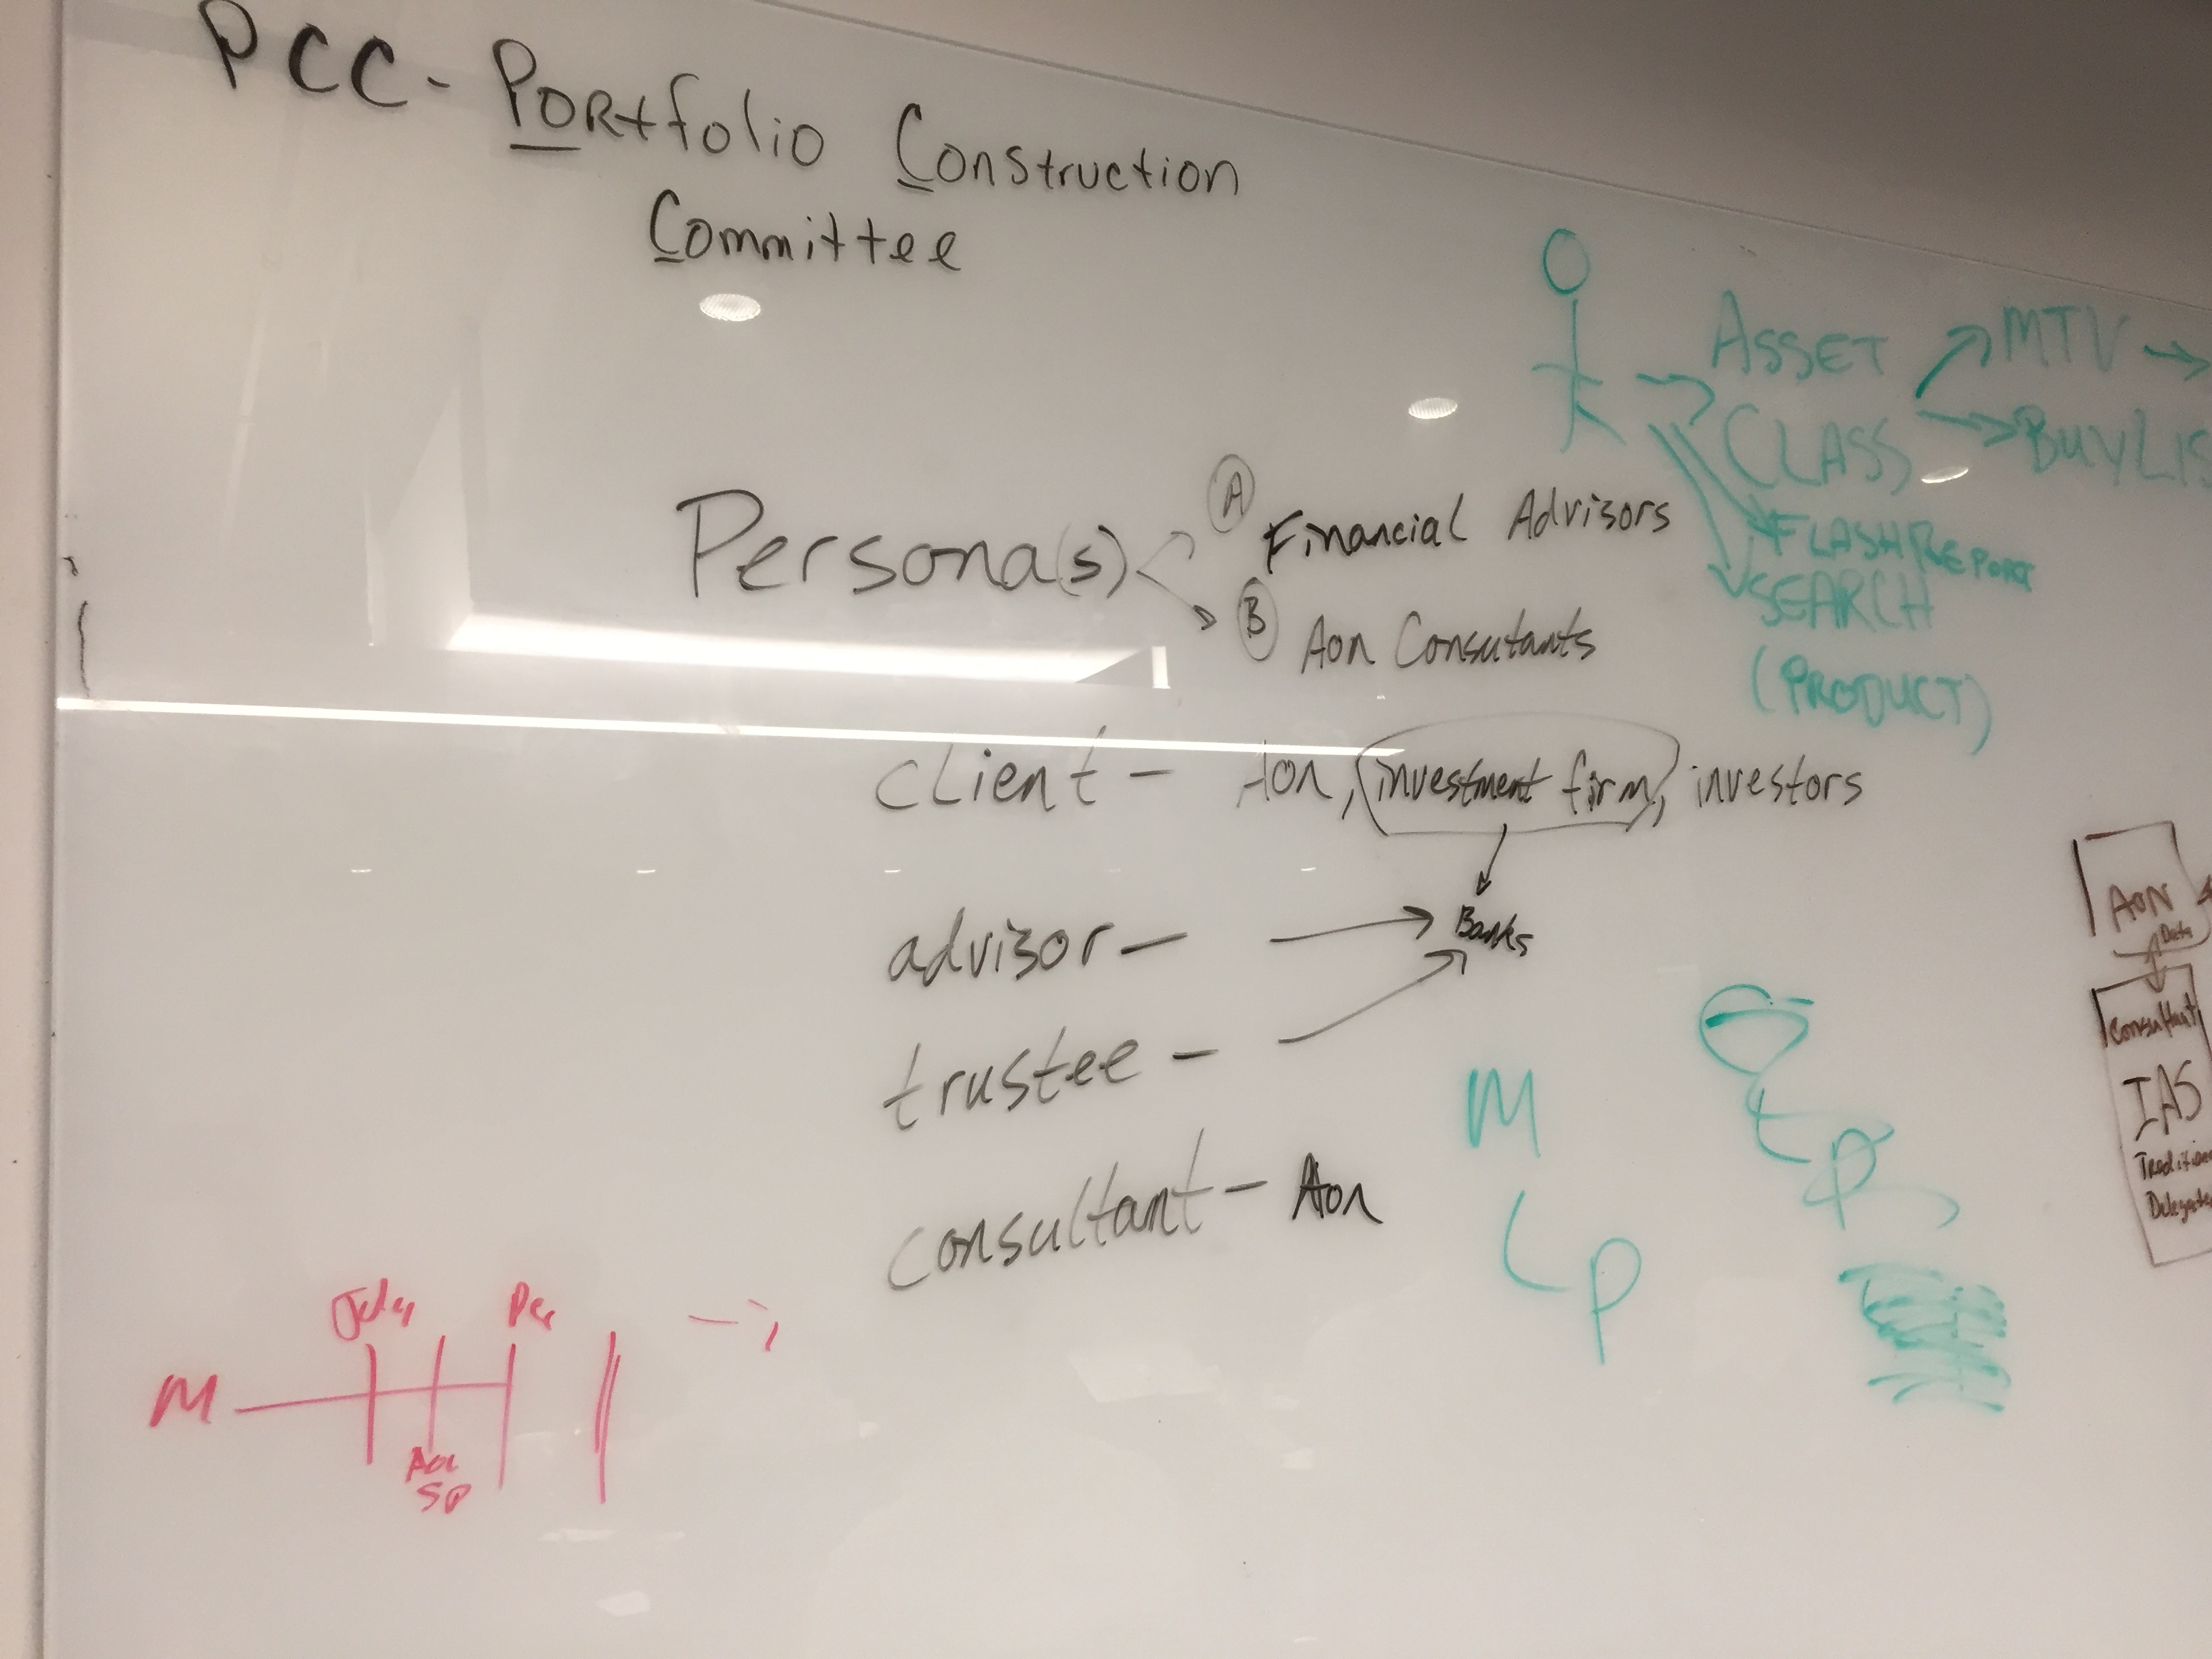 PCC - Portfolio Construction
Committee
ASSET
CLASS
MTV
BUYLIS
FLASH REPORT
SEARCH
(PRODUCT)
Persona(s)
A Financial Advisors
B Aon Consutants
client - Aon, investment firm, investors
Banks
advisor -
trustee -
consultant - Aon
M
L P
t p
AON
Data
Consultant
IAS
M